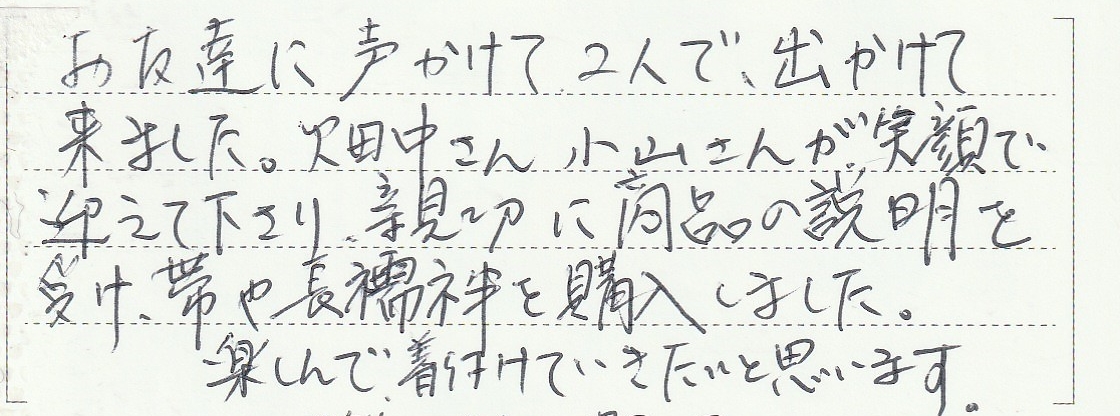 お友達に声かけて2人で、出かけて
来ました。畑中さん小山さんが笑顔で
迎えて下さり、親切に商品の説明を
受け、帯や長襦袢を購入しました。
楽しんで、着付けていきたいと思います。